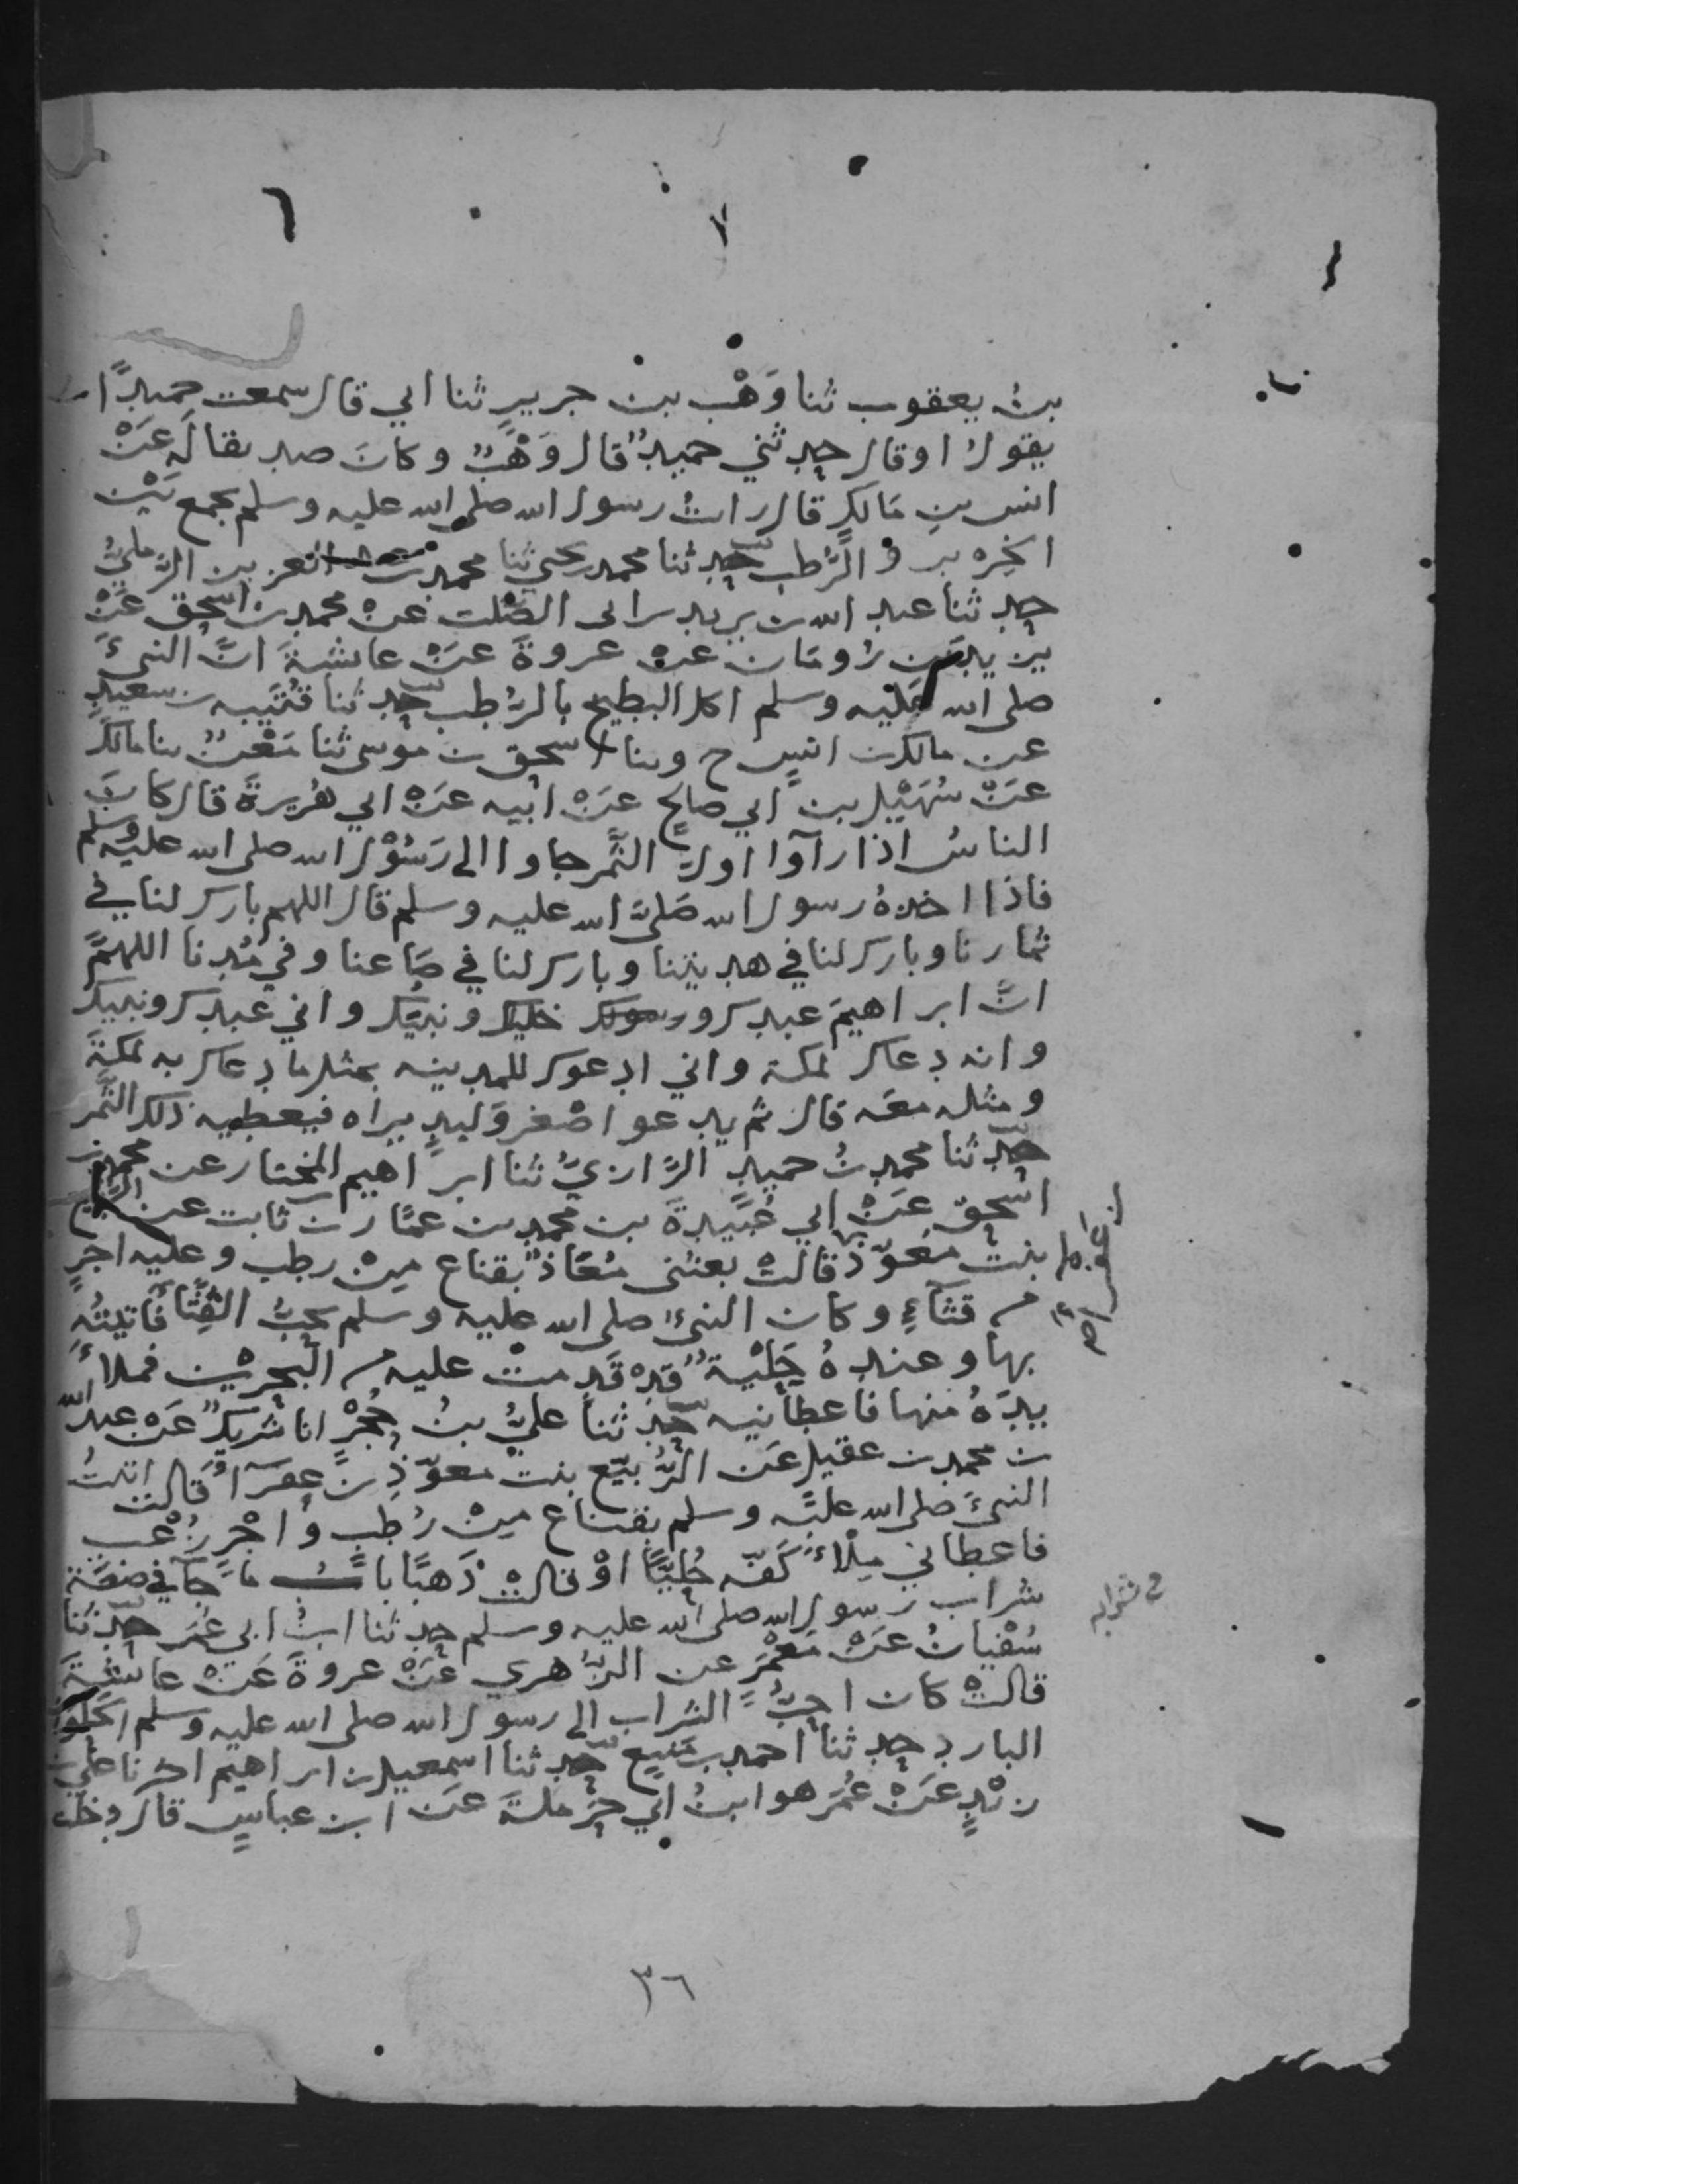 ٦
٧
بنُ يعقوب ثنا وَهْب بن جريرٍ ثنا ابي قال سمعت حميدًا
يقول او قال حدثني حميدٌ قال وَهْبٌ وكانَ صديقا له عَنْ
انس بنِ مَالكٍ قال رات رسول الله صلى الله عليه وسلم يجمع بَيْن
الخِرْبِز والرُّطب حدثنا محمد بن يحيى ثنا محمد بن عبد العزيز الرَّمليُّ
حدثنا عبد الله بن يزيد بن الصَّلت عن محمد بن اسحق عَنْ
يزيد بن رُومَان عن عروةَ عَنْ عايشةَ انَّ النبيَّ
صلى الله عَليْه وسلم اكل البطيخ بالرُّطب حدثنا قُتَيبه بن سعيدٍ
عن مالك بن انسٍ ح وثنا اسحق بن موسى ثنا مَعْنٌ ثنا مالكٌ
عَنْ سُهَيْل بن ابي صالحٍ عَنْ ابيه عَنْ ابي هُريرةَ قال كانَ
الناسُ اذا راَوا اولَ الثَّمر جاوا الى رَسُوْل الله صلى الله عليه وسلم
فاذا اخذهُ رسول الله صَلىَّ الله عليه وسلم قال اللهم بارك لنا في
ثمارنا وبارك لنا في مدينتنا وبارك لنا في صَاعنا وفي مُدِنا اللهمَّ
انَّ ابراهيمَ عبدك ورسولك خليلك ونبيّك واني عبدك ونبيك
وانه دعاك لمكة واني ادعوك للمدينه بمثل ما دعاك به لمكةَ
ومثله معَه قال ثم يدعو اصْغر وَليدٍ يراه فيعطيه ذلك الثَّمر
حدثنا محمد بنُ حميدٍ الرَّازيُّ ثنا ابراهيم المختار عن محمد بن
اسْحق عَنْ ابي عُبَيدةَ بن محمد بن عمَّار بن ثابت عن الرُّبيّع
بنت معَوّذ قالتْ بعثنى مُعَاذٌ بقناعٍ مِنْ رطبٍ وعليه اجرٍ
بن عفراء
من قثآءٍ وكان النبيُّ صلى الله عليه وسلم يحبُّ القِثَّا فَاتيتُه
بها وعندهُ حِليْةٌ قدْ قَدِمتْ عليه من البَحرَيْن فملأَ
يدَهُ منها فاعطانيه حدثنا عليُّ بنُ حُجْرٍ انا شَريكٌ عَنْ عبد الله
بن محمد بن عقيل عَن الرُّبَيّع بنت معوّذِ بن عفرآ قالت اتيتُ
النبيَّ صلى الله عليه وسلم بقناعٍ مِنْ رُطبٍ واجْرٍ زُغْبٍ
فاعطاني مِلْأَ كَفّه حُليًّا اوْ قالتْ ذَهبًا بابُ ما جآ في صفة
شراب رسول الله صلى الله عليه وسلم حدثنا ابنُ ابي عُمَر حدثنا
في شرابه
سُفْيانُ عَنْ مَعْمَرٍ عن الزُّهري عَنْ عروةَ عَنْ عايشة
قالتْ كان احَبُّ الشراب الى رسول الله صلى الله عليه وسلم الحُلْوَ
البارد حدثنا احمد بن مَنيع حدثنا اسمعيل بن ابراهيم اخبرنا عليُّ
بن زيْدٍ عَنْ عُمَر هو ابنُ ابي حَرْملةَ عَن ابن عباسٍ قال دخلتُ
٣٦